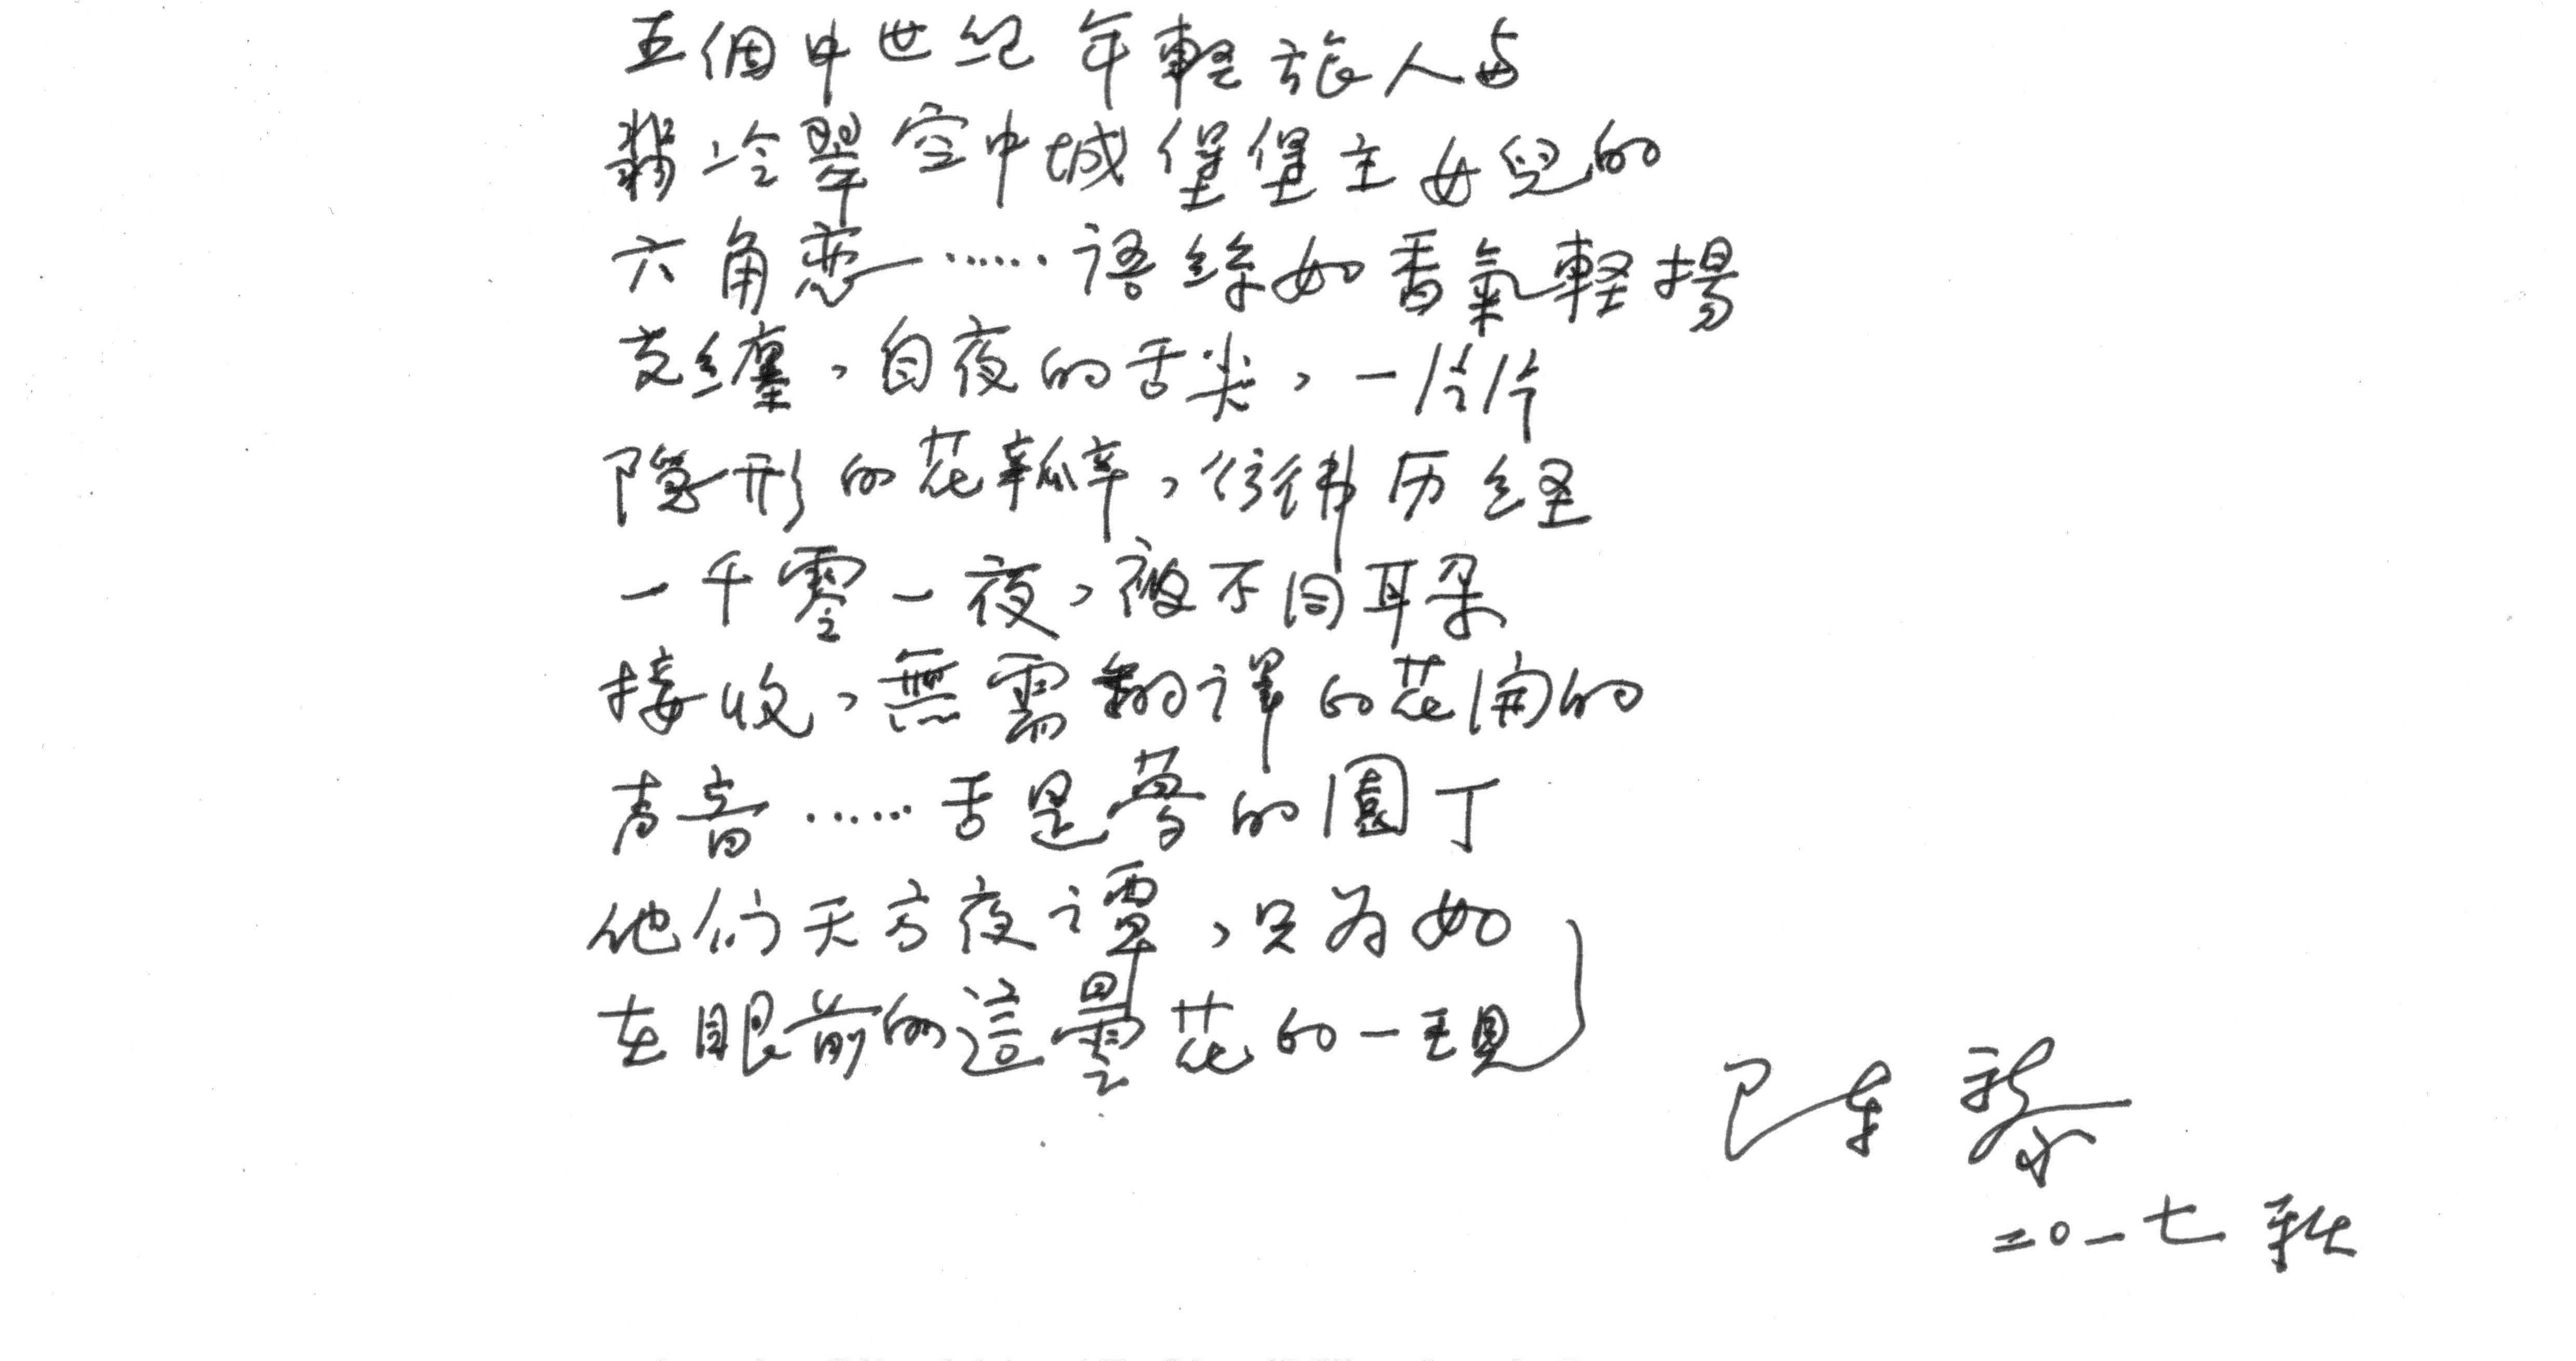 五個中世紀年輕旅人与
翡冷翠空中城堡堡主女兒的
六角恋……語絲如香氣輕揚
交纏，自夜的舌尖，一片片
隐形的花瓣，彷彿历經
一千零一夜，被不同耳朵
接收，無需翻譯的花開的
声音……舌是夢的園丁
他们天方夜譚，只为如
在眼前的這曇花的一現
陳黎
二〇一七秋